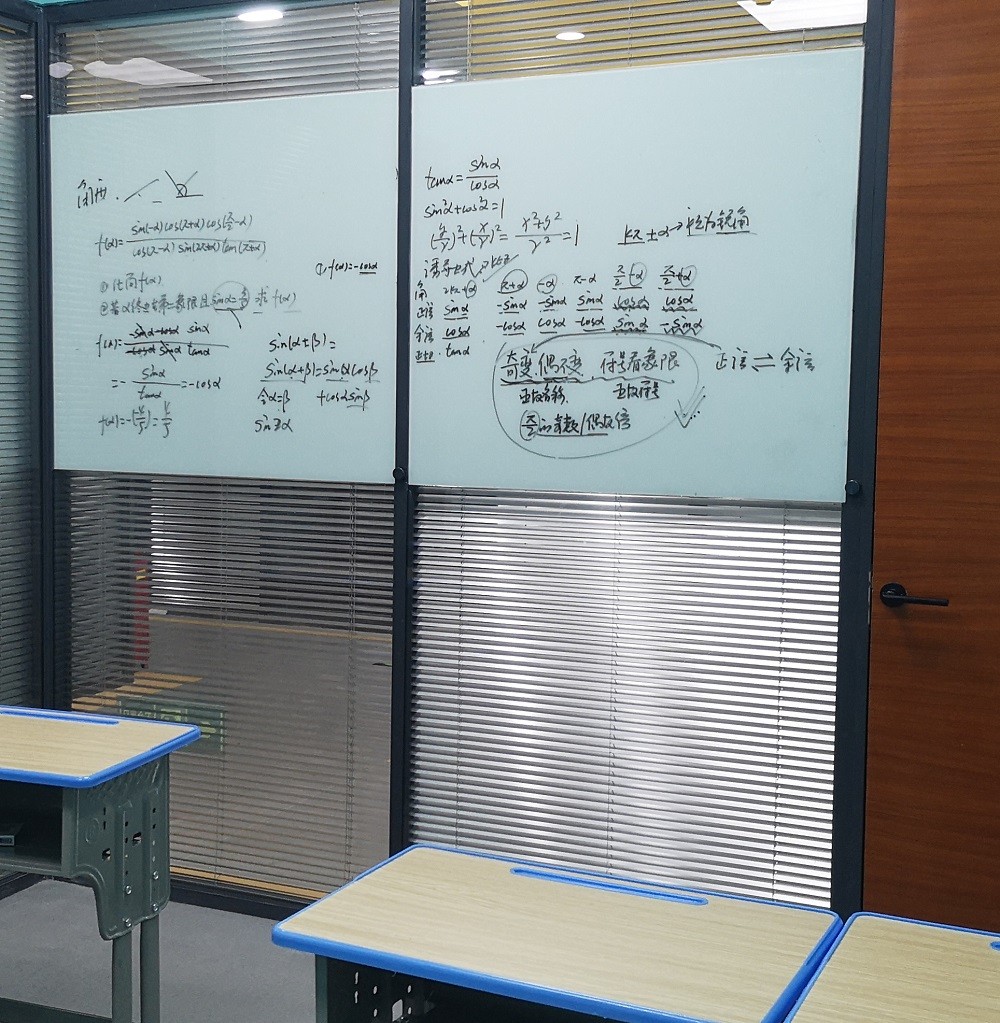 f(α)=sin(-α)cos(π+α)cos(π/2-α)/cos(π-α)sin(2π+α)tan(π+α)
① 化简f(α)
②若α终边在第二象限且sinα=3/5 求f(α)
f(α)=-sinα·-cosα sinα/-cosα sinα tanα
=-sinα/tanα=-cosα
f(α)=-(-4/5)=4/5
①f(α)=-cosα
sin(α+β)=
sin(α+β)=sinαcosβ
+cosαsinβ
令α=β
sin2α
tanα=sinα/cosα
sin²α+cos²α=1
(y/r)²+(x/r)²=x²+y²/r²=1
kπ±α→把α视为锐角
诱导公式
角 2kπ+α π+α -α π-α π/2-α π/2+α
正弦 sinα -sinα -sinα sinα cosα cosα
余弦 cosα -cosα cosα -cosα sinα -sinα
正切 tanα
奇变偶不变 符号看象限 正弦⇌余弦
函数名称 函数符号
π/2的奇数/偶数倍